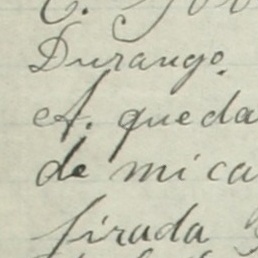 Durango.
A. queda
de mi ca
firada